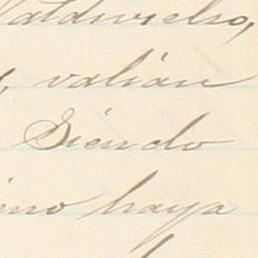 Valdivielso,
valían
Siendo
haya